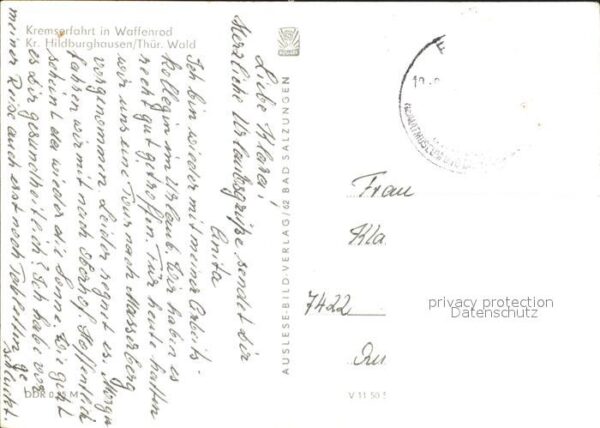 Kremserfahrt in Waffenrod
Kr. Hildburghausen/Thür. Wald
Liebe Klara!
Herzliche Urlaubsgrüße sendet dir
Anita
Ich bin wieder mit meiner Arbeits-
kollegin im Urlaub. Wir haben es
noch gut getroffen. Für heute hatten
wir uns eine Tour nach Masserberg
vorgenommen. Leider regnet es. Morgen
fahren wir mit nach Oberhof. Hoffentlich
scheint da wieder die Sonne. Wie geht
es Dir gesundheitlich? Ich habe vor
meiner Reise auch erst noch Tabletten ge
schluckt.
AUSLESE-BILD-VERLAG/62 BAD SALZUNGEN
Frau
Kla
7422
privacy protection
Datenschutz
DDR 0, M
V 11 50